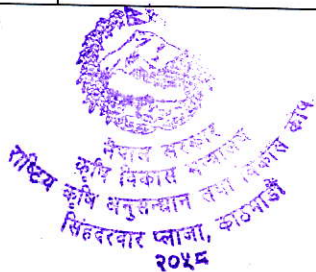 नेपाल सरकार
कृषि विकास मन्त्रालय
राष्ट्रिय कृषि अनुसन्धान तथा विकास कोष
सिंहदरवार प्लाजा, काठमाडौं
२०५८